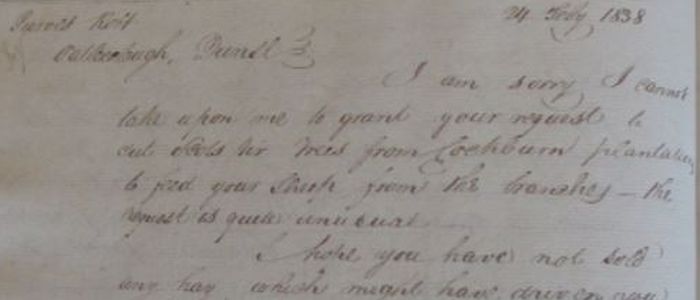 24 Feby 1838
I am sorry I cannot
take upon me to grant your request to
cut Scots fir trees from Cockburn plantation
to feed your Sheep from the branches — the
request is quite unusual
I hope you have not sold
any hay which might have driven you